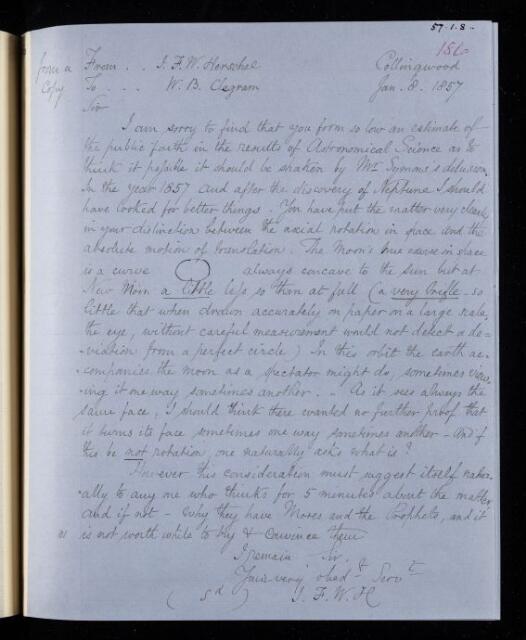 57.1.8.
186
from a
Copy
From . . J. F. W. Herschel Collingwood
To . . . W. B. Clegram Jan. 8. 1857
Sir
I am sorry to find that you form so low an estimate of
the public faith in the results of Astronomical Science as to
think it possible it should be shaken by Mr Symons's delusion.
In the year 1857 and after the discovery of Neptune I should
have looked for better things. You have put the matter very clearly
in your distinction between the axial rotation in space and the
absolute motion of translation. The Moon's true course in space
is a curve always concave to the sun but at
New Moon a little less so than at full (a very trifle - so
little that when drawn accurately on paper on a large scale,
the eye, without careful measurement would not detect a de-
-viation from a perfect circle) In this orbit the earth ac-
-companies the moon as a spectator might do, sometimes view-
-ing it one way sometimes another. . As it sees always the
same face, I should think there wanted no further proof that
it turns its face sometimes one way sometimes another - and if
this be not rotation one naturally asks what is?
However this consideration must suggest itself natur-
-ally to any one who thinks for 5 minutes about the matter
and if not - why they have Moses and the Prophets, and it
is not worth while to try & convince them
I remain Sir
Your very obedt Servt
(sd) J. F. W. H